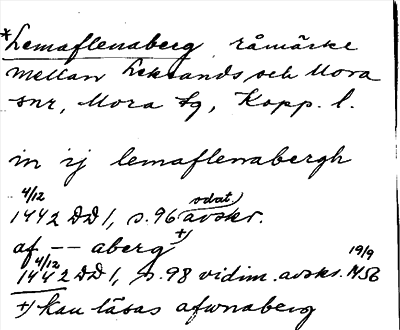 *Lemaflenaberg, råmärke
mellan Leksands och Mora
snr, Mora tg, Kopp. l.
in ij lemaflenabergh
4/12 odat
1442 DD1, s. 96 avskr.
af -- aberg +)
4/12 19/9
1442 DD1, s. 98 vidim. avskr. 1456
+) kan läsas afwnaberg